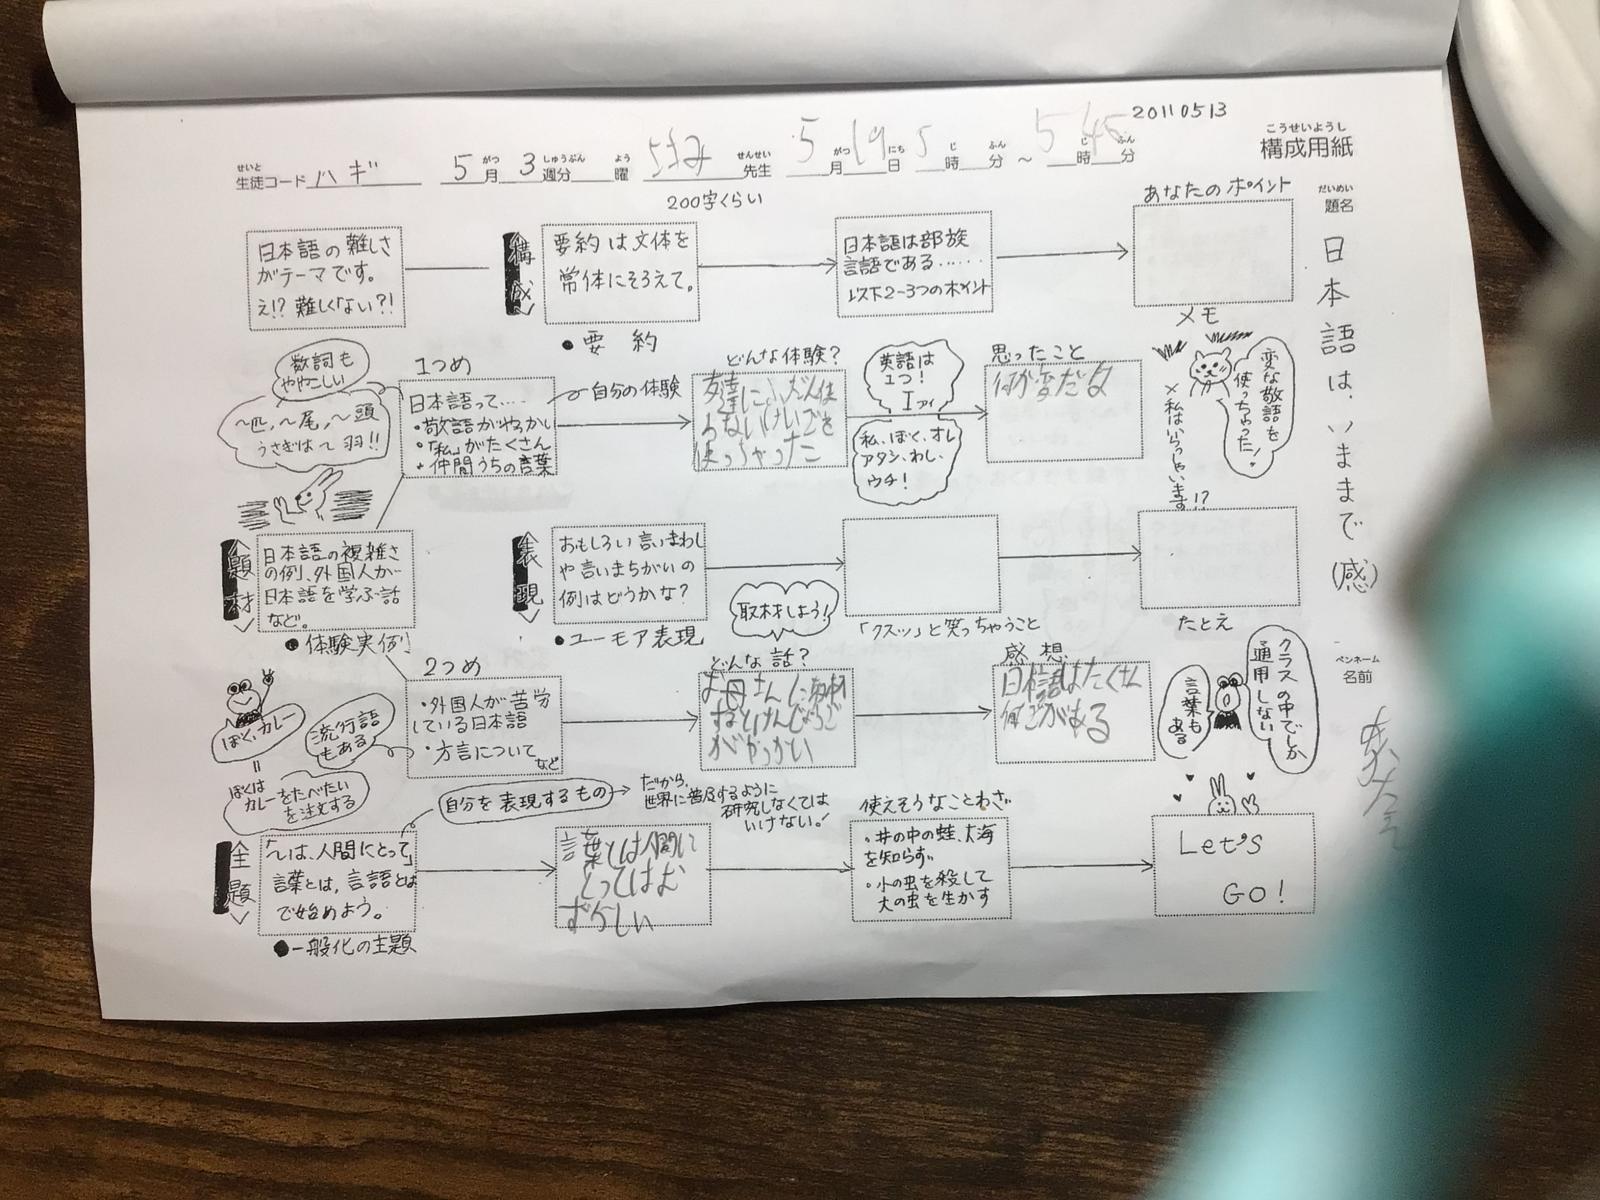 20110513
こうせいようし
構成用紙
せいと
生徒コード ハギ
5月 3週分 曜
がつ しゅうぶん よう
せんせい
先生
5月19日 5時 分 ~ 5時45分
がつ にち じ ふん じ ふん
200字くらい
だいめい
題名
日本語は、いままで(感)
ペンネーム
名前
日本語の難しさ
がテーマです。
え!?難しくない?!
構成
要約は文体を
常体にそろえて。
●要約
日本語は部族
言語である……
以下2~3つのポイント
あなたのポイント
メモ
数詞も
ややこしい
~匹、~尾、~頭
うさぎは~羽!!
1つめ
日本語って….
・敬語がややこし
・「私」がたくさん
・仲間うちの言葉
自分の体験
どんな体験?
友達にふだん使
わないけいごを
使っちゃった
英語は
1つ!
I アイ
私、ぼく、オレ
アタシ、わし、
ウチ!
思ったこと
何か変だな
変な敬語を
使っちゃった!
×私はいらっしゃいます!?
題材
日本語の複雑さ
の例、外国人が
日本語を学ぶ話
など。
●体験実例
表現
おもしろい言いまわし
や言いまちがいの
例はどうかな?
●ユーモア表現
取材しよう!
「クスッ」と笑っちゃうこと
たとえ
ぼく、カレー
=
ぼくは
カレーをたべたい
を注文する
流行語
もある
2つめ
・外国人が苦労
している日本語
・方言について
など
どんな話?
お母さんに取材
するとけんじょうご
がやっかい
感想
日本語はたくさん
何ごがある
クラスの中でしか
通用しない
言葉も
ある
自分を表現するもの
だから、
世界に普及するように
研究しなくては
いけない!
主題
「~は、人間にとって」
言葉とは、言語とは
で始めよう。
●一般化の主題
言葉とは人間に
とってはむ
ずかしい
使えそうなことわざ
・井の中の蛙、大海
を知らず。
・小の虫を殺して
大の虫を生かす
Let's
GO!